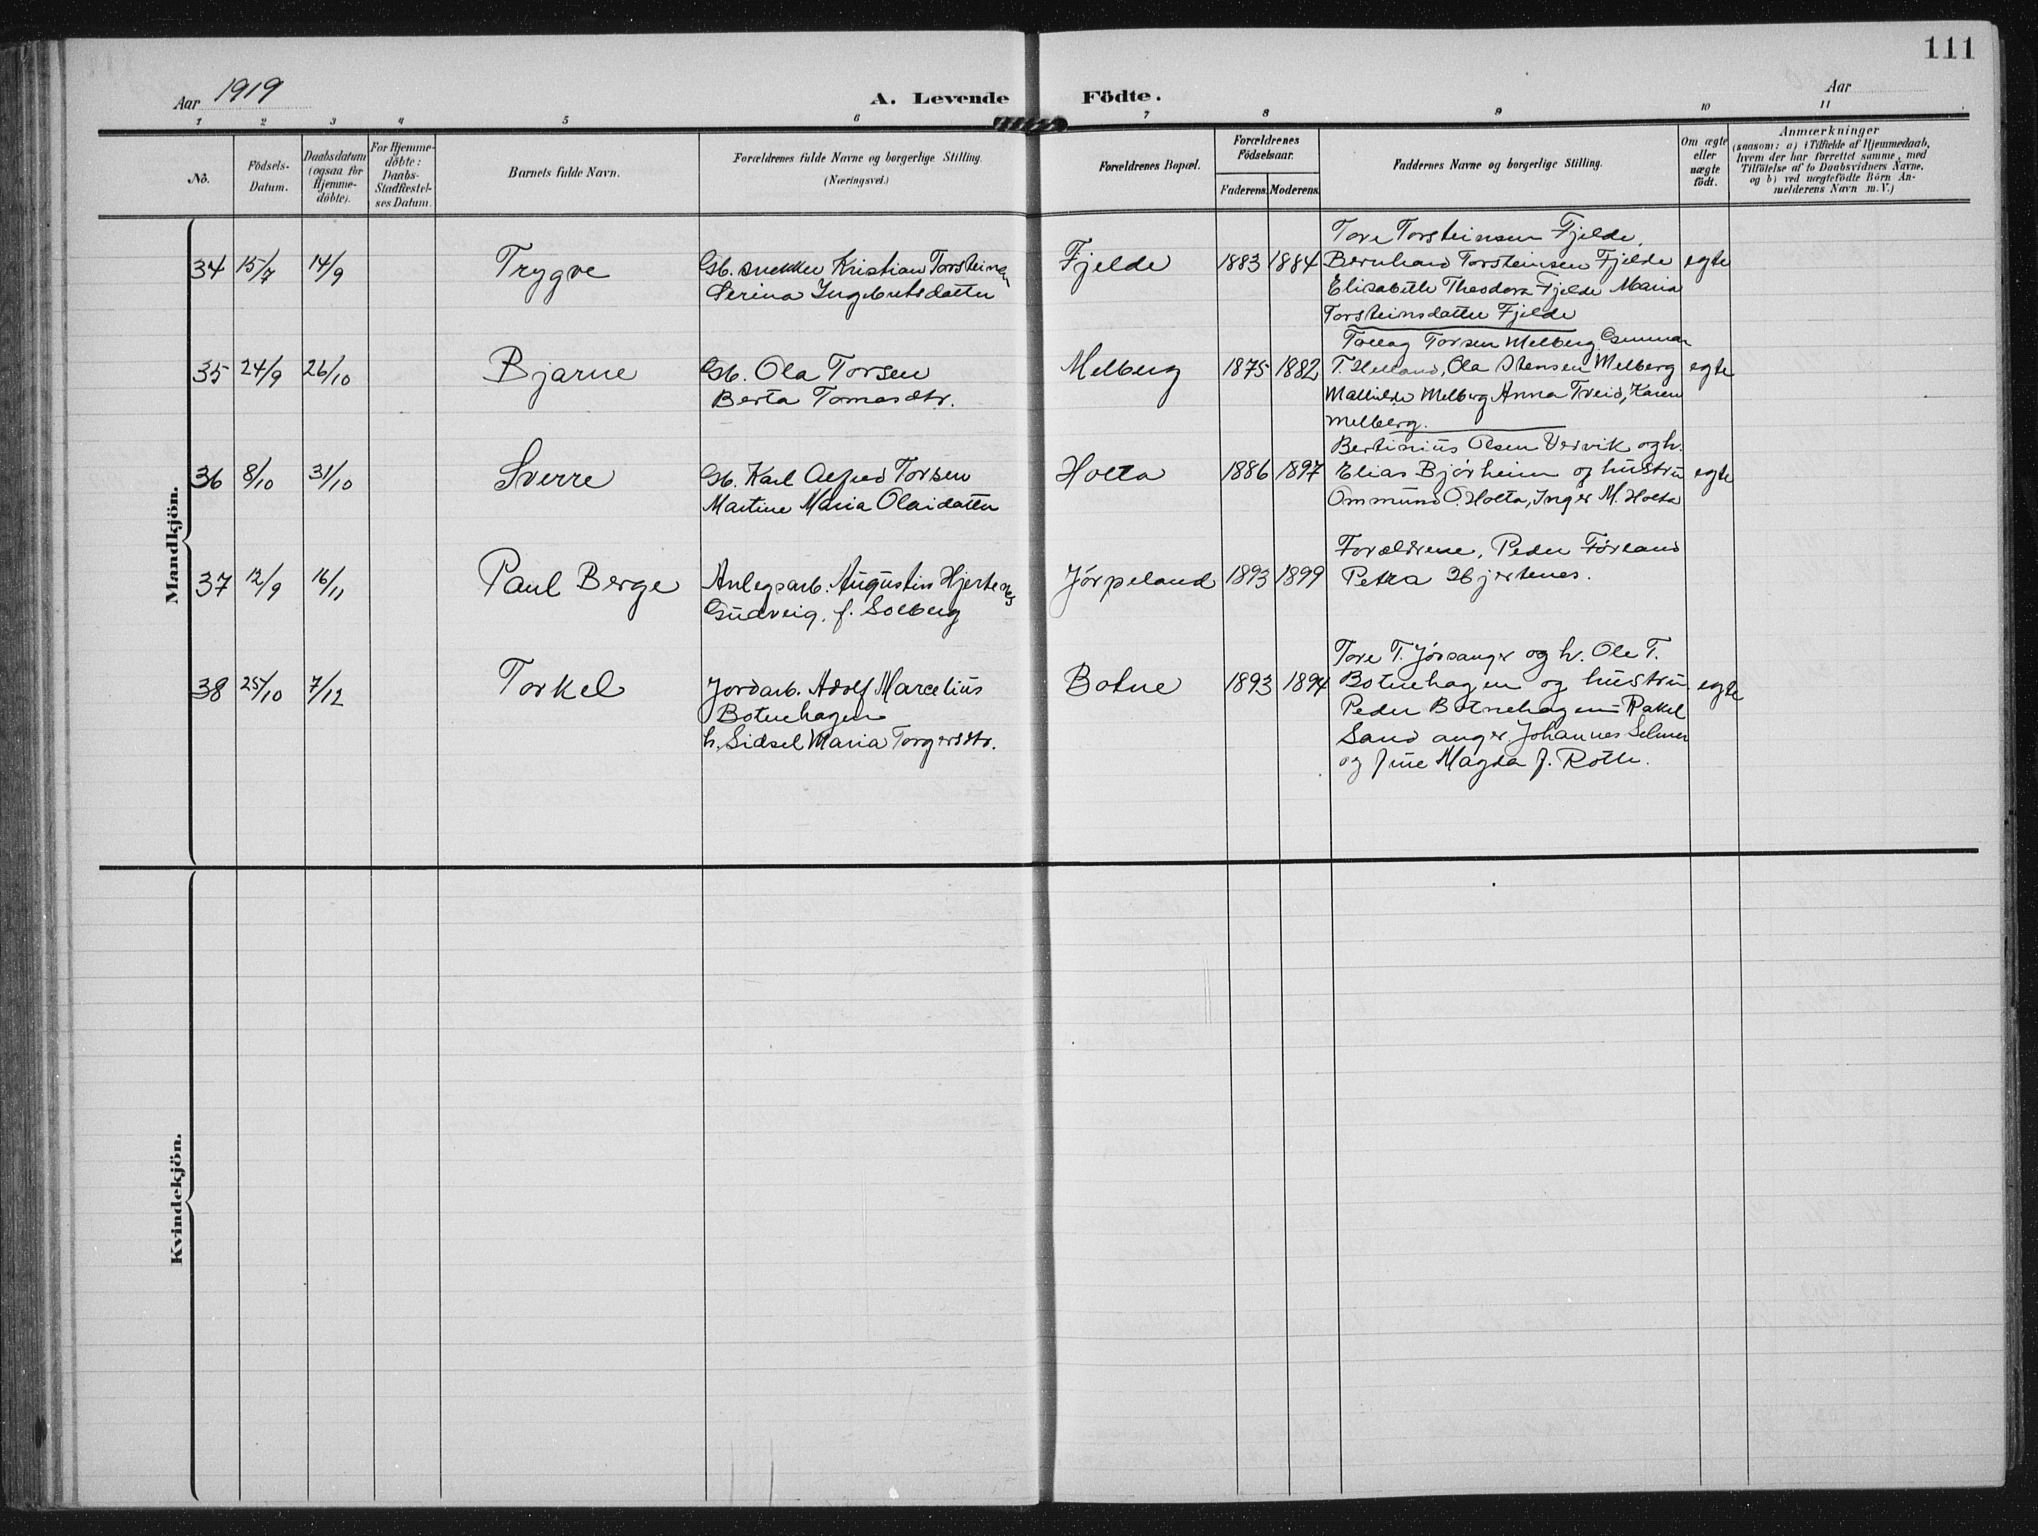 111
Aar 1919
A. Levende Födte.
Aar
1 2 3 4 5 6 7 8 9 10 11
No.
Födsels-Datum.
Daabsdatum (ogsaa for Hjemme-döbte).
For Hjemme-döbte: Daabs-Stadfæstel-ses Datum.
Barnets fulde Navn.
Forældrenes fulde Navne og borgerlige Stilling.
(Næringsvei.)
Forældrenes Bopæl.
Forældrenes Födselsaar.
Faderens. Moderens.
Faddernes Navne og borgerlige Stilling.
Om ægte eller uægte födt.
Anmærkninger
(saasom: a) i Tilfælde af Hjemmedaab,
hvem der har forrettet samme, med
Tilföielse af to Daabsvidners Navne.
og b) ved uægtefödte Börn An-
melderens Navn m. V.)
Mandkjön.
34 15/7 14/9 Trygve Gb. snekker Kristian Torsteinsen Fjelde 1883 1884 egte
Serina Ingebretsdatter
Tore Torsteinsen Fjelde,
Bernhard Torsteinsen Fjelde
Elisabeth Theodora Fjelde Maria
Torsteinsdatter Fjelde
35 24/9 26/10 Bjarne Gb. Ola Torsen Melberg 1875 1882 egte
Berta Tomasdtr.
Tollag Torsen Melberg Gunnar
T. Helland, Ola Stensen Melberg
Mathilde Melberg Anna Treid, Karen
Melberg.
36 8/10 31/10 Sverre Gb. Karl Alfred Torsen Holta 1886 1897 egte
Martine Maria Olaidatter
Bertinius Olsen Vervik og h.
Elias Bjørheim og hustru
Ommund O. Holta, Inger M. Holta
37 12/9 16/11 Paul Berge Anlegsarb. Augustin Hjertenes Jørpeland 1893 1899
Gudveig, f. Solberg
Forældrene, Peder Førland
Petra Hjertenes.
38 25/10 7/12 Torkel Jordarb. Adolf Marcelius Botne 1893 1894 egte
Botnehagen
h. Sidsel Maria Torgersdtr.
Tore T. Jøssanger og h. Ole T.
Botnehagen og hustru
Peder Botnehagen Rakel
Sandanger. Johannes Selmer
og Jine Magda J. Roth.
Kvindekjön.